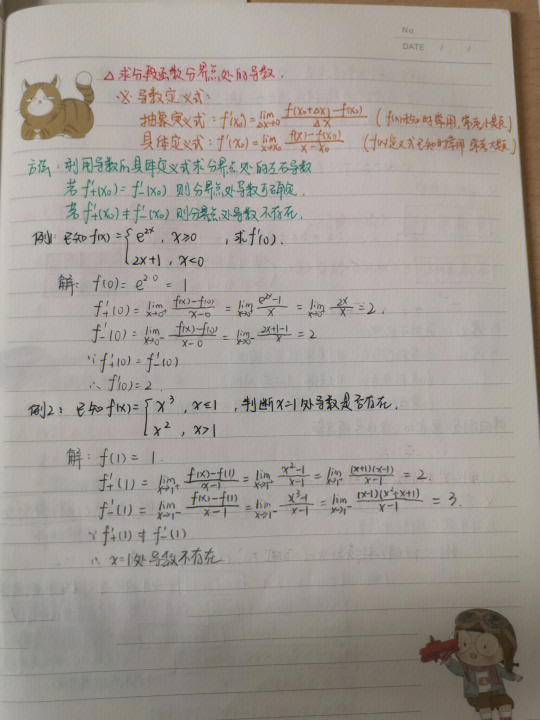 No
DATE / /
△ 求分段函数分界点处的导数.
※ 导数定义式:
抽象定义式: f'(x₀) = lim_{Δx→0} \frac{f(x₀+Δx)-f(x₀)}{Δx}
具体定义式: f'(x₀) = lim_{x→x₀} \frac{f(x)-f(x₀)}{x-x₀}
方法: 利用导数的具体定义式求分界点处的左右导数
若 f'₊(x₀) = f'₋(x₀) 则分界点处导数可确定.
若 f'₊(x₀) ≠ f'₋(x₀) 则分界点处导数不存在.
例1: 已知 f(x) = { e^{2x}, x≥0 , 求 f'(0).
2x+1, x<0
解: f(0) = e^{2·0} = 1
f'₊(0) = lim_{x→0⁺} \frac{f(x)-f(0)}{x-0} = lim_{x→0⁺} \frac{e^{2x}-1}{x} = lim_{x→0⁺} \frac{2x}{x} = 2.
f'₋(0) = lim_{x→0⁻} \frac{f(x)-f(0)}{x-0} = lim_{x→0⁻} \frac{2x+1-1}{x} = 2
∵ f'₊(0) = f'₋(0)
∴ f'(0) = 2.
例2: 已知 f(x) = { x³, x≤1 , 判断 x=1 处导数是否存在.
x², x>1
解: f(1) = 1.
f'₊(1) = lim_{x→1⁺} \frac{f(x)-f(1)}{x-1} = lim_{x→1⁺} \frac{x²-1}{x-1} = lim_{x→1⁺} \frac{(x+1)(x-1)}{x-1} = 2
f'₋(1) = lim_{x→1⁻} \frac{f(x)-f(1)}{x-1} = lim_{x→1⁻} \frac{x³-1}{x-1} = lim_{x→1⁻} \frac{(x-1)(x²+x+1)}{x-1} = 3.
∵ f'₊(1) ≠ f'₋(1)
∴ x=1 处导数不存在.